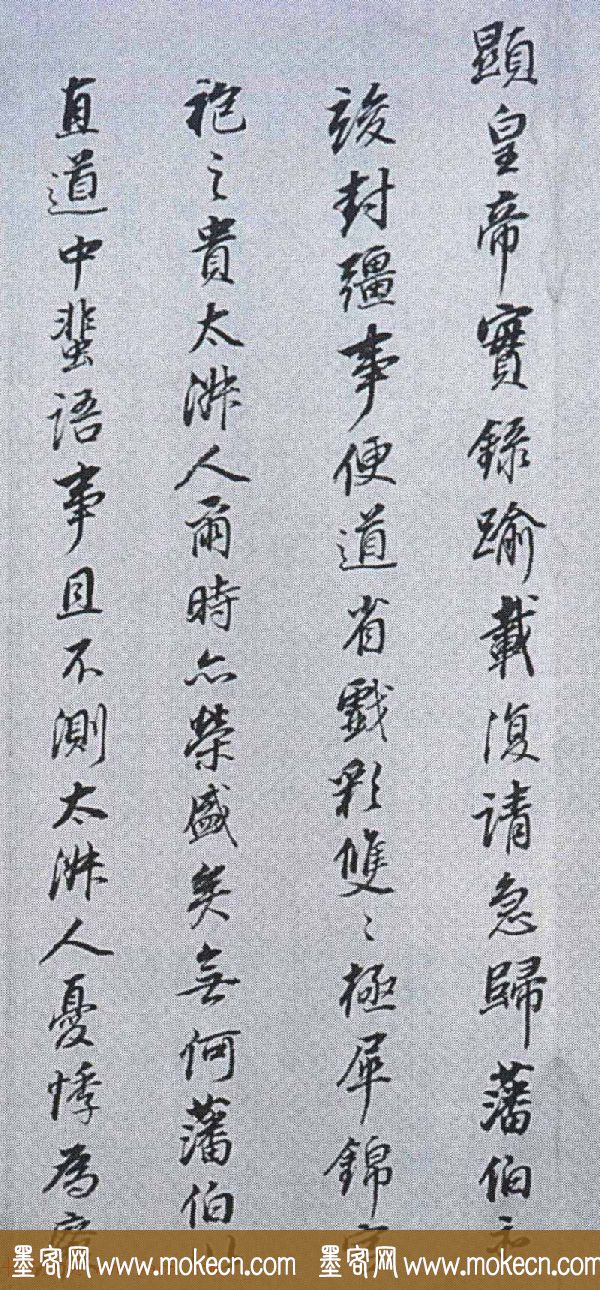 顯皇帝實錄踰載復請急歸藩伯亦
竣封疆事便道省戲彩雙〻極犀錦宮
袍之貴太淋人爾時亦榮盛矣無何藩伯以
直道中蜚語事且不測太淋人憂悸為廢
墨客网 www.mokecn.com 墨客网 www.mokecn.com